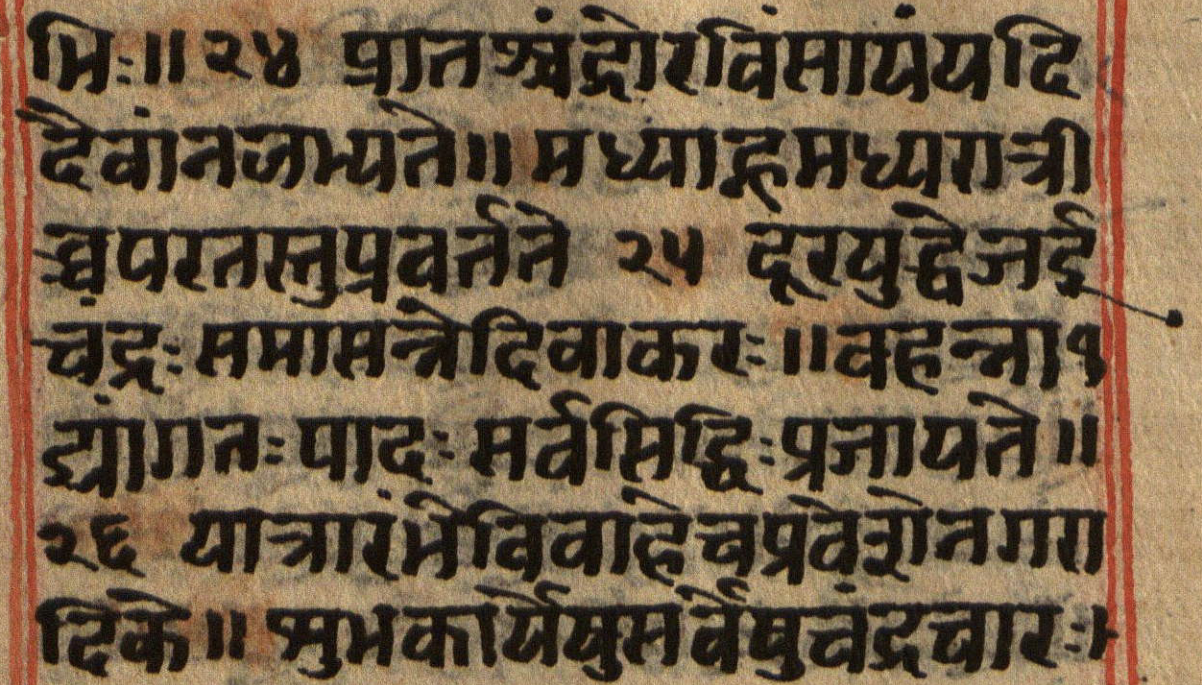 भिः॥२४ प्रातश्चंद्रोरविंसायंयदि
देवांनजभ्यते॥मध्याह्नमध्यरात्री
च्चपरतस्तुप्रवर्त्तते २५ दूरयुद्धेजई
चंद्रःसमासन्नेदिवाकरः॥वहन्ना१
ड्यांगतःपादःसर्वसिद्धिःप्रजायते॥
२६ यात्रारंभेविवाहेचप्रवेशेनगरा
दिके॥शुभकार्येषुसर्वेषुचंद्रचारः